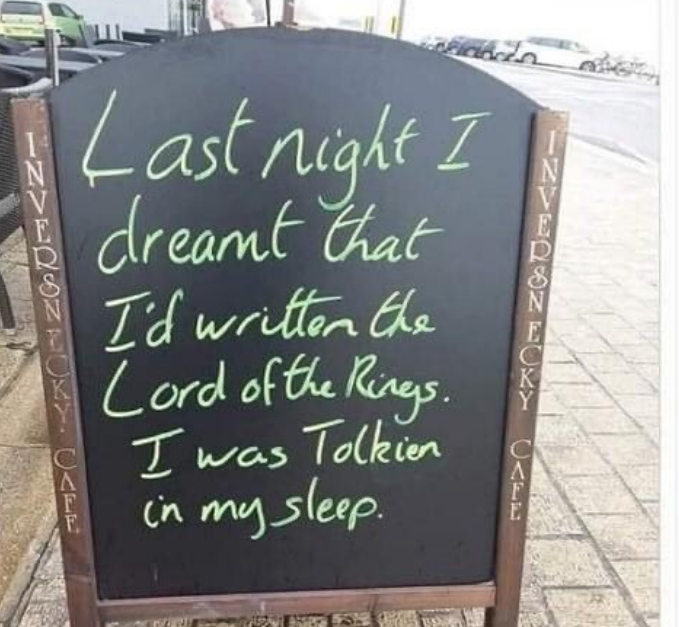 Last night I
dreamt that
I'd written the
Lord of the Rings.
I was Tolkien
in my sleep.
INVERSNECKY CAFE
INVERSNECKY CAFE